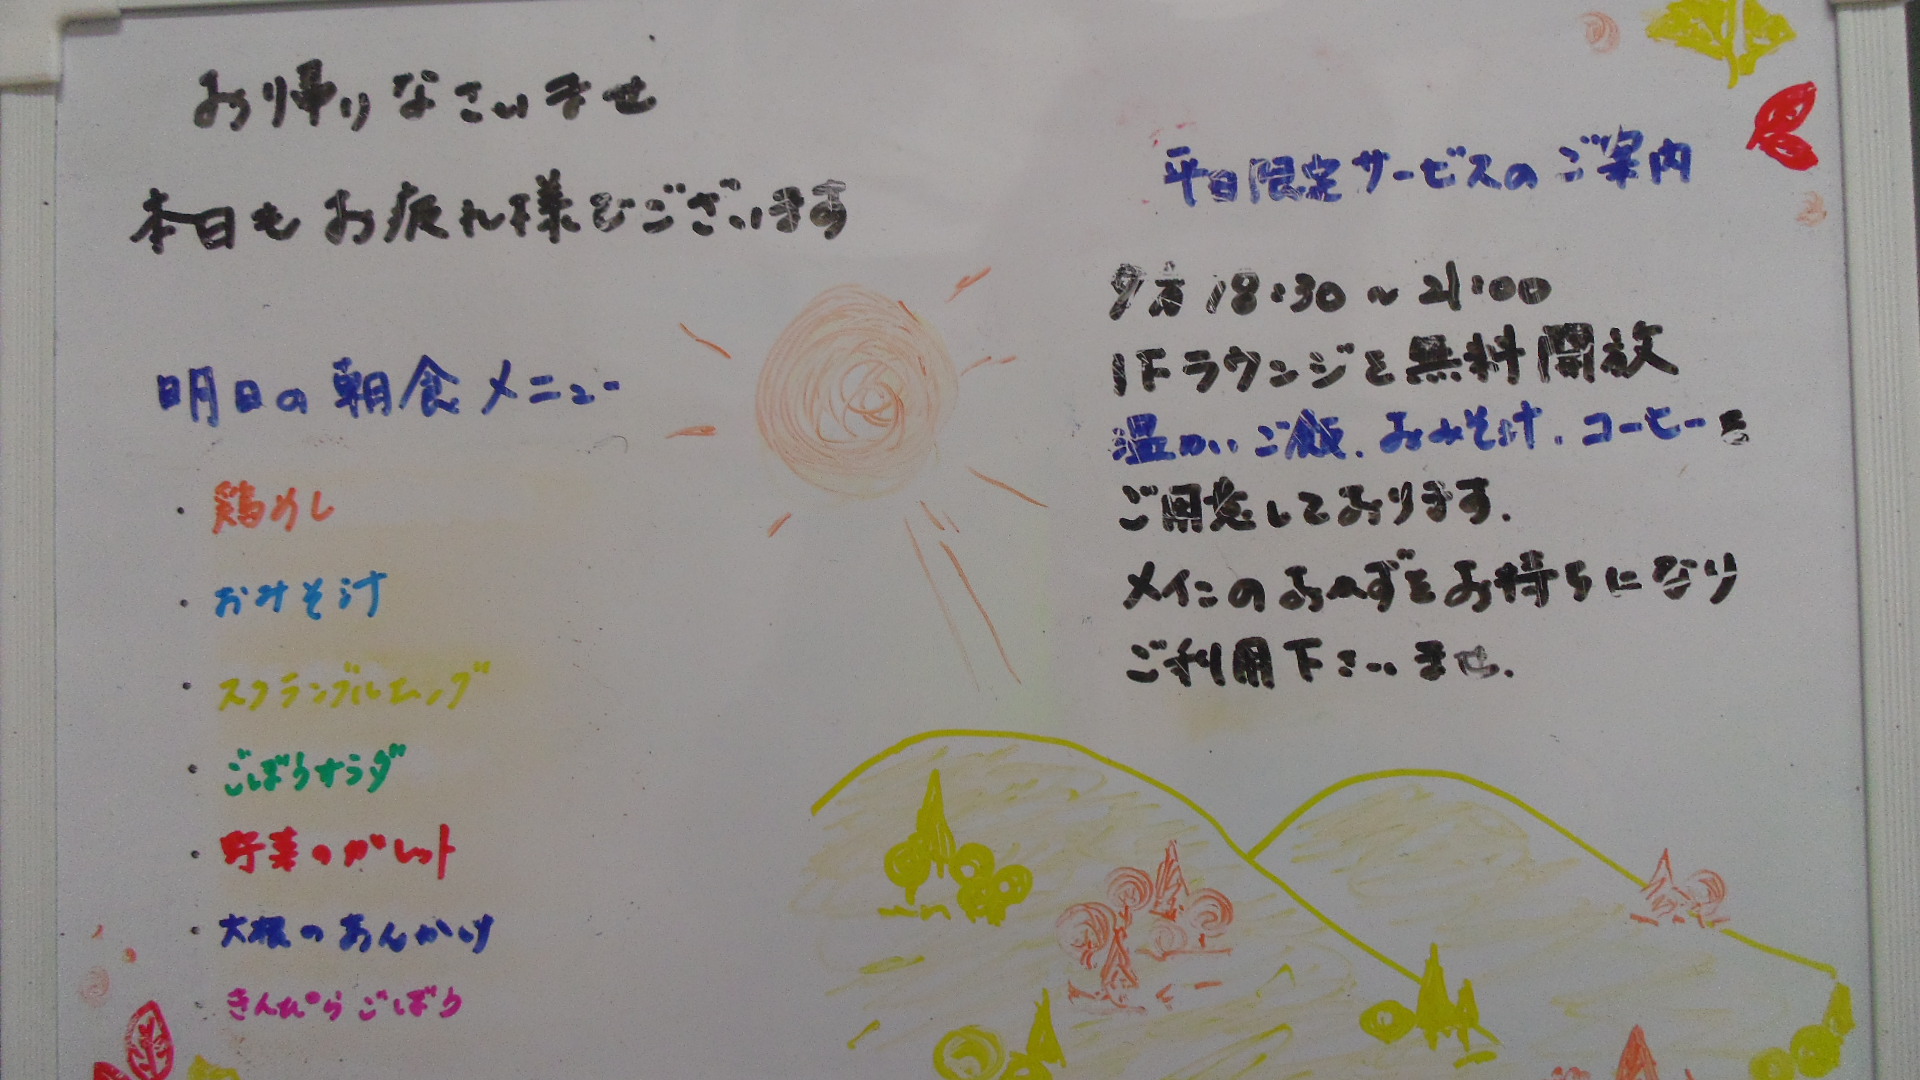 お帰りなさいませ
本日もお疲れ様でございます
明日の朝食メニュー
・鶏めし
・おみそ汁
・スクランブルエッグ
・ごぼうサラダ
・野菜のガレット
・大根のあんかけ
・きんぴらごぼう
平日限定サービスのご案内
夕方18:30～21:00
1Fラウンジを無料開放
温かいご飯.おみそ汁.コーヒーを
ご用意しております.
メインのおかずをお持ちになり
ご利用下さいませ.